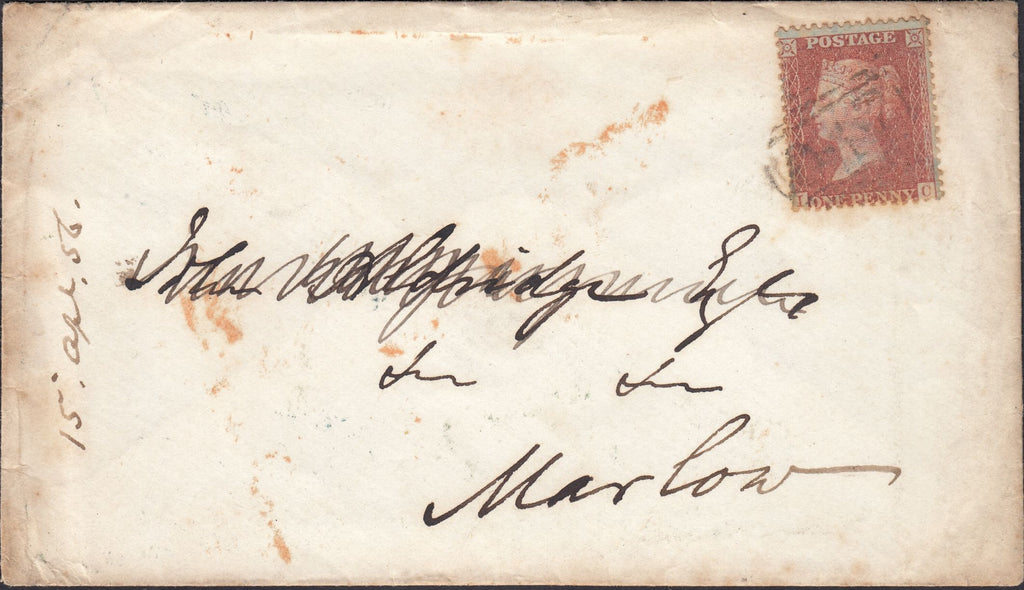 POSTAGE
ONE PENNY
I C
15. Apl. 56.
John
&c &c
Marlow